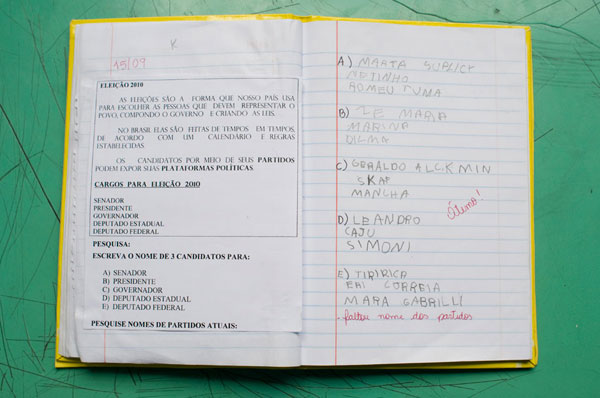 K
15/09
ELEIÇÃO 2010
AS ELEIÇÕES SÃO A FORMA QUE NOSSO PAÍS USA
PARA ESCOLHER AS PESSOAS QUE DEVEM REPRESENTAR O
POVO, COMPONDO O GOVERNO E CRIANDO AS LEIS.
NO BRASIL ELAS SÃO FEITAS DE TEMPOS EM TEMPOS,
DE ACORDO COM UM CALENDÁRIO E REGRAS
ESTABELECIDAS.
OS CANDIDATOS POR MEIO DE SEUS PARTIDOS
PODEM EXPOR SUAS PLATAFORMAS POLÍTICAS.
CARGOS PARA ELEIÇÃO 2010
SENADOR
PRESIDENTE
GOVERNADOR
DEPUTADO ESTADUAL
DEPUTADO FEDERAL
PESQUISA:
ESCREVA O NOME DE 3 CANDIDATOS PARA:
A) SENADOR
B) PRESIDENTE
C) GOVERNADOR
D) DEPUTADO ESTADUAL
E) DEPUTADO FEDERAL
PESQUISE NOMES DE PARTIDOS ATUAIS:
A) MARTA SUPLICY
NETINHO
ROMEU TUMA
B) ZE MARIA
MARINA
DILMA
C) GERALDO ALCKMIN
SKAF
MANCHA
Ótimo!
D) LEANDRO
CAJU
SIMONI
E) TIRIRICA
CORREIA
MARA GABRILLI
- faltou nome dos partidos